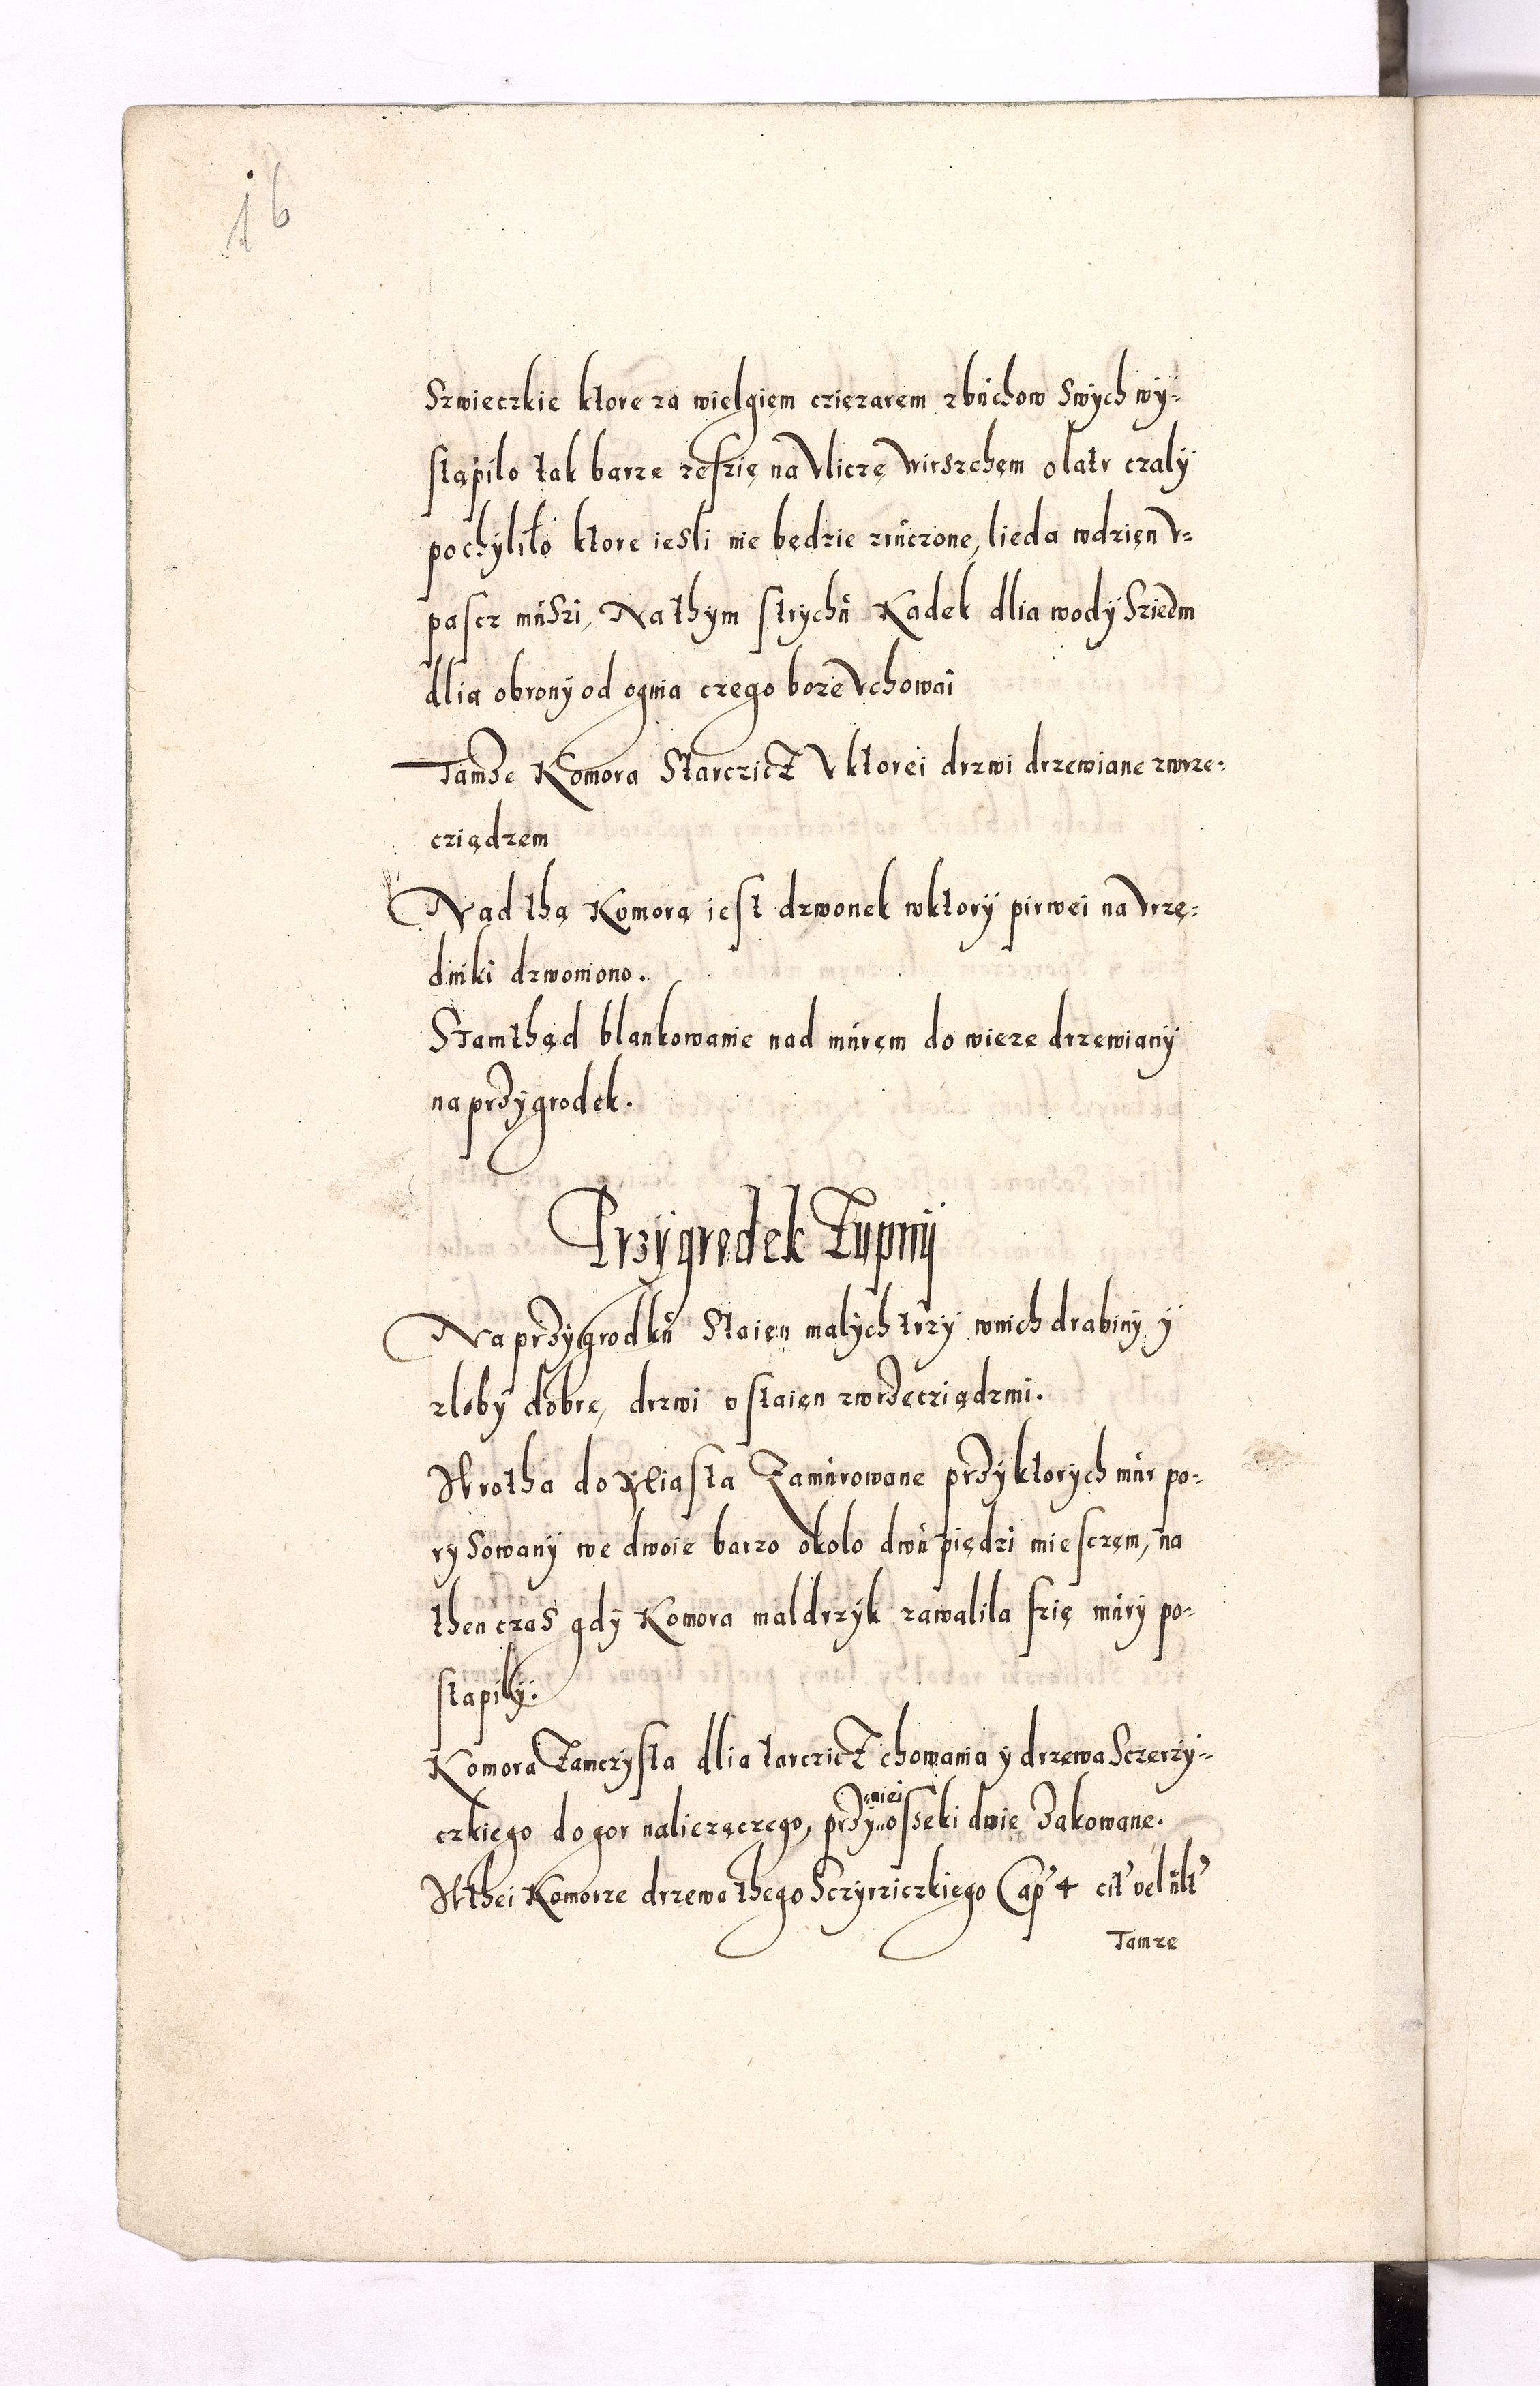 16
Szwieczkie ktore za wielgiem czięzarem zbuchow Swych wy-
stąpilo tak barze zeszię na Vliczę wirszchem o latr czaly
pochyliło ktore iesli nie będzie znuczone, lieda wdzien v-
pascz muszi, Na thym strychu Kadek dlia wody Sziedm
dlia obrony od ognia czego boze Vchowai
Tamze Komora Starczicz V ktorei drzwi drzewiane zwrze-
cziądzem
Nad thą Komorą iest dzwonek wktory pirwei na Vrzę-
dniki dzwoniono.
Stamthąd blankowanie nad murem do wieze drzewiany
naprzygrodek.
Przygrodek Zupny
Na przygrodku Staien malych trzy wnich drabiny y
zloby dobre, drzwi v staien zwrzecziądzmi.
Wrotha do Miasta Zamurowane przy ktorych mur po-
rysowany we dwoie barzo okolo dwu piędzi miesczem, na
then czas gdy Komora maldrzyk zawalila szię mury po-
stąpily.
Komora Zamczysta dlia tarczicz chowania y drzewa Sczerzy-
czkiego do gor nalieząCzego, przy niei osseki dwie Zakowane.
Wthei Komorze drzewa thego Sczyrziczkiego Cap 4 cit vel ult
Tamze